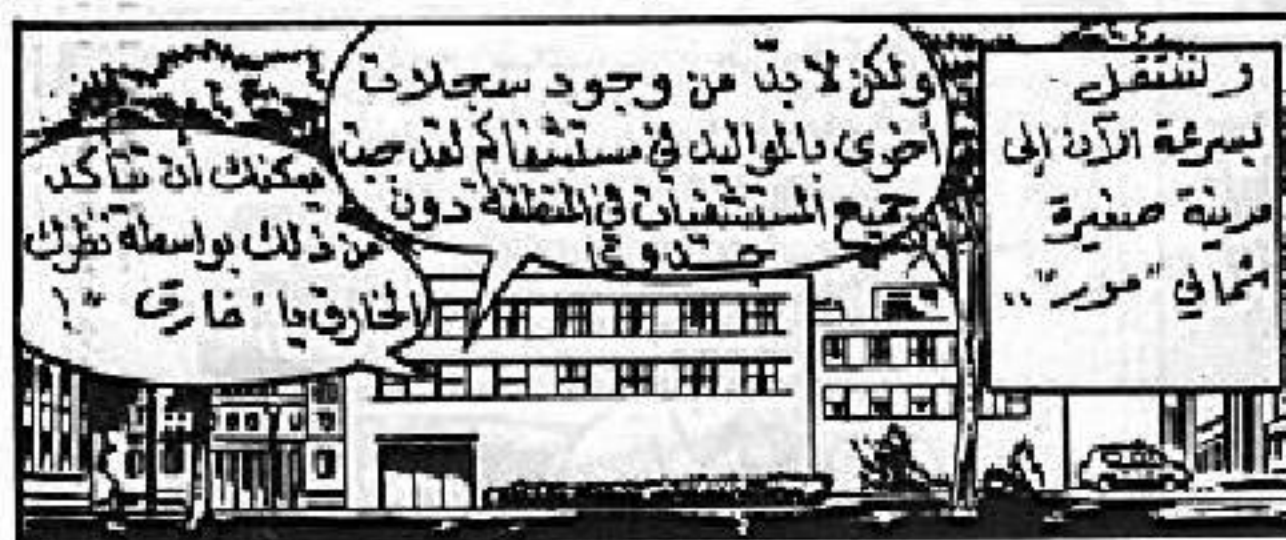 ولننتقل
بسرعة الآن إلى
مدينة صغيرة
شمالي "مور"..
ولكن لا بدّ من وجود سجلات
أخرى بالمواليد في مستشفاكم لقد جبت
جميع المستشفيات في المنطقة دون
جدوى!
يمكنك أن تتأكد
من ذلك بواسطة نظرك
الخارق يا "خارق"!